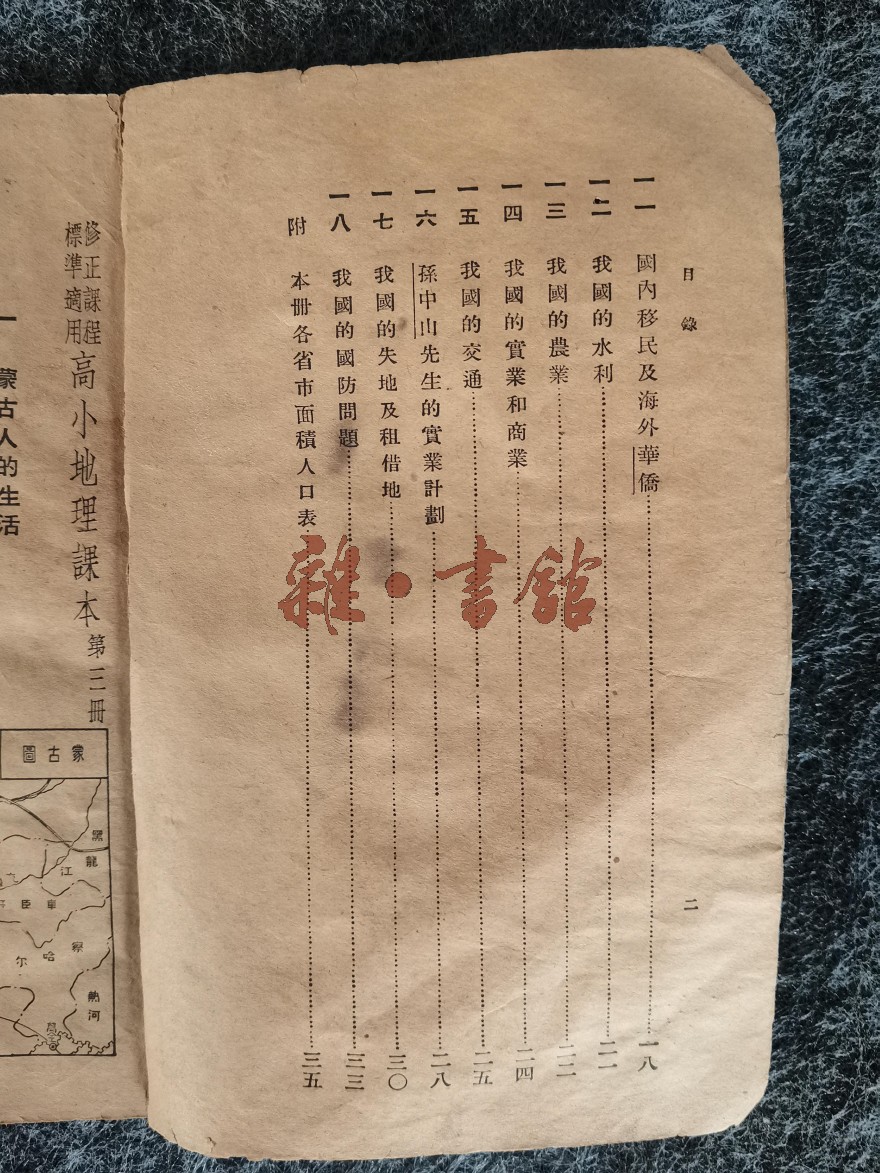 目錄
二
一一 國內移民及海外華僑……一八
一二 我國的水利……二一
一三 我國的農業……二二
一四 我國的實業和商業……二四
一五 我國的交通……二五
一六 孫中山先生的實業計劃……二八
一七 我國的失地及租借地……三〇
一八 我國的國防問題……三三
附 本冊各省市面積人口表……三五
雜·書館
修正課程
標準適用
高小地理課本 第三冊
一 蒙古人的生活
蒙古圖
黑龍江
車臣
察哈尔
熱河